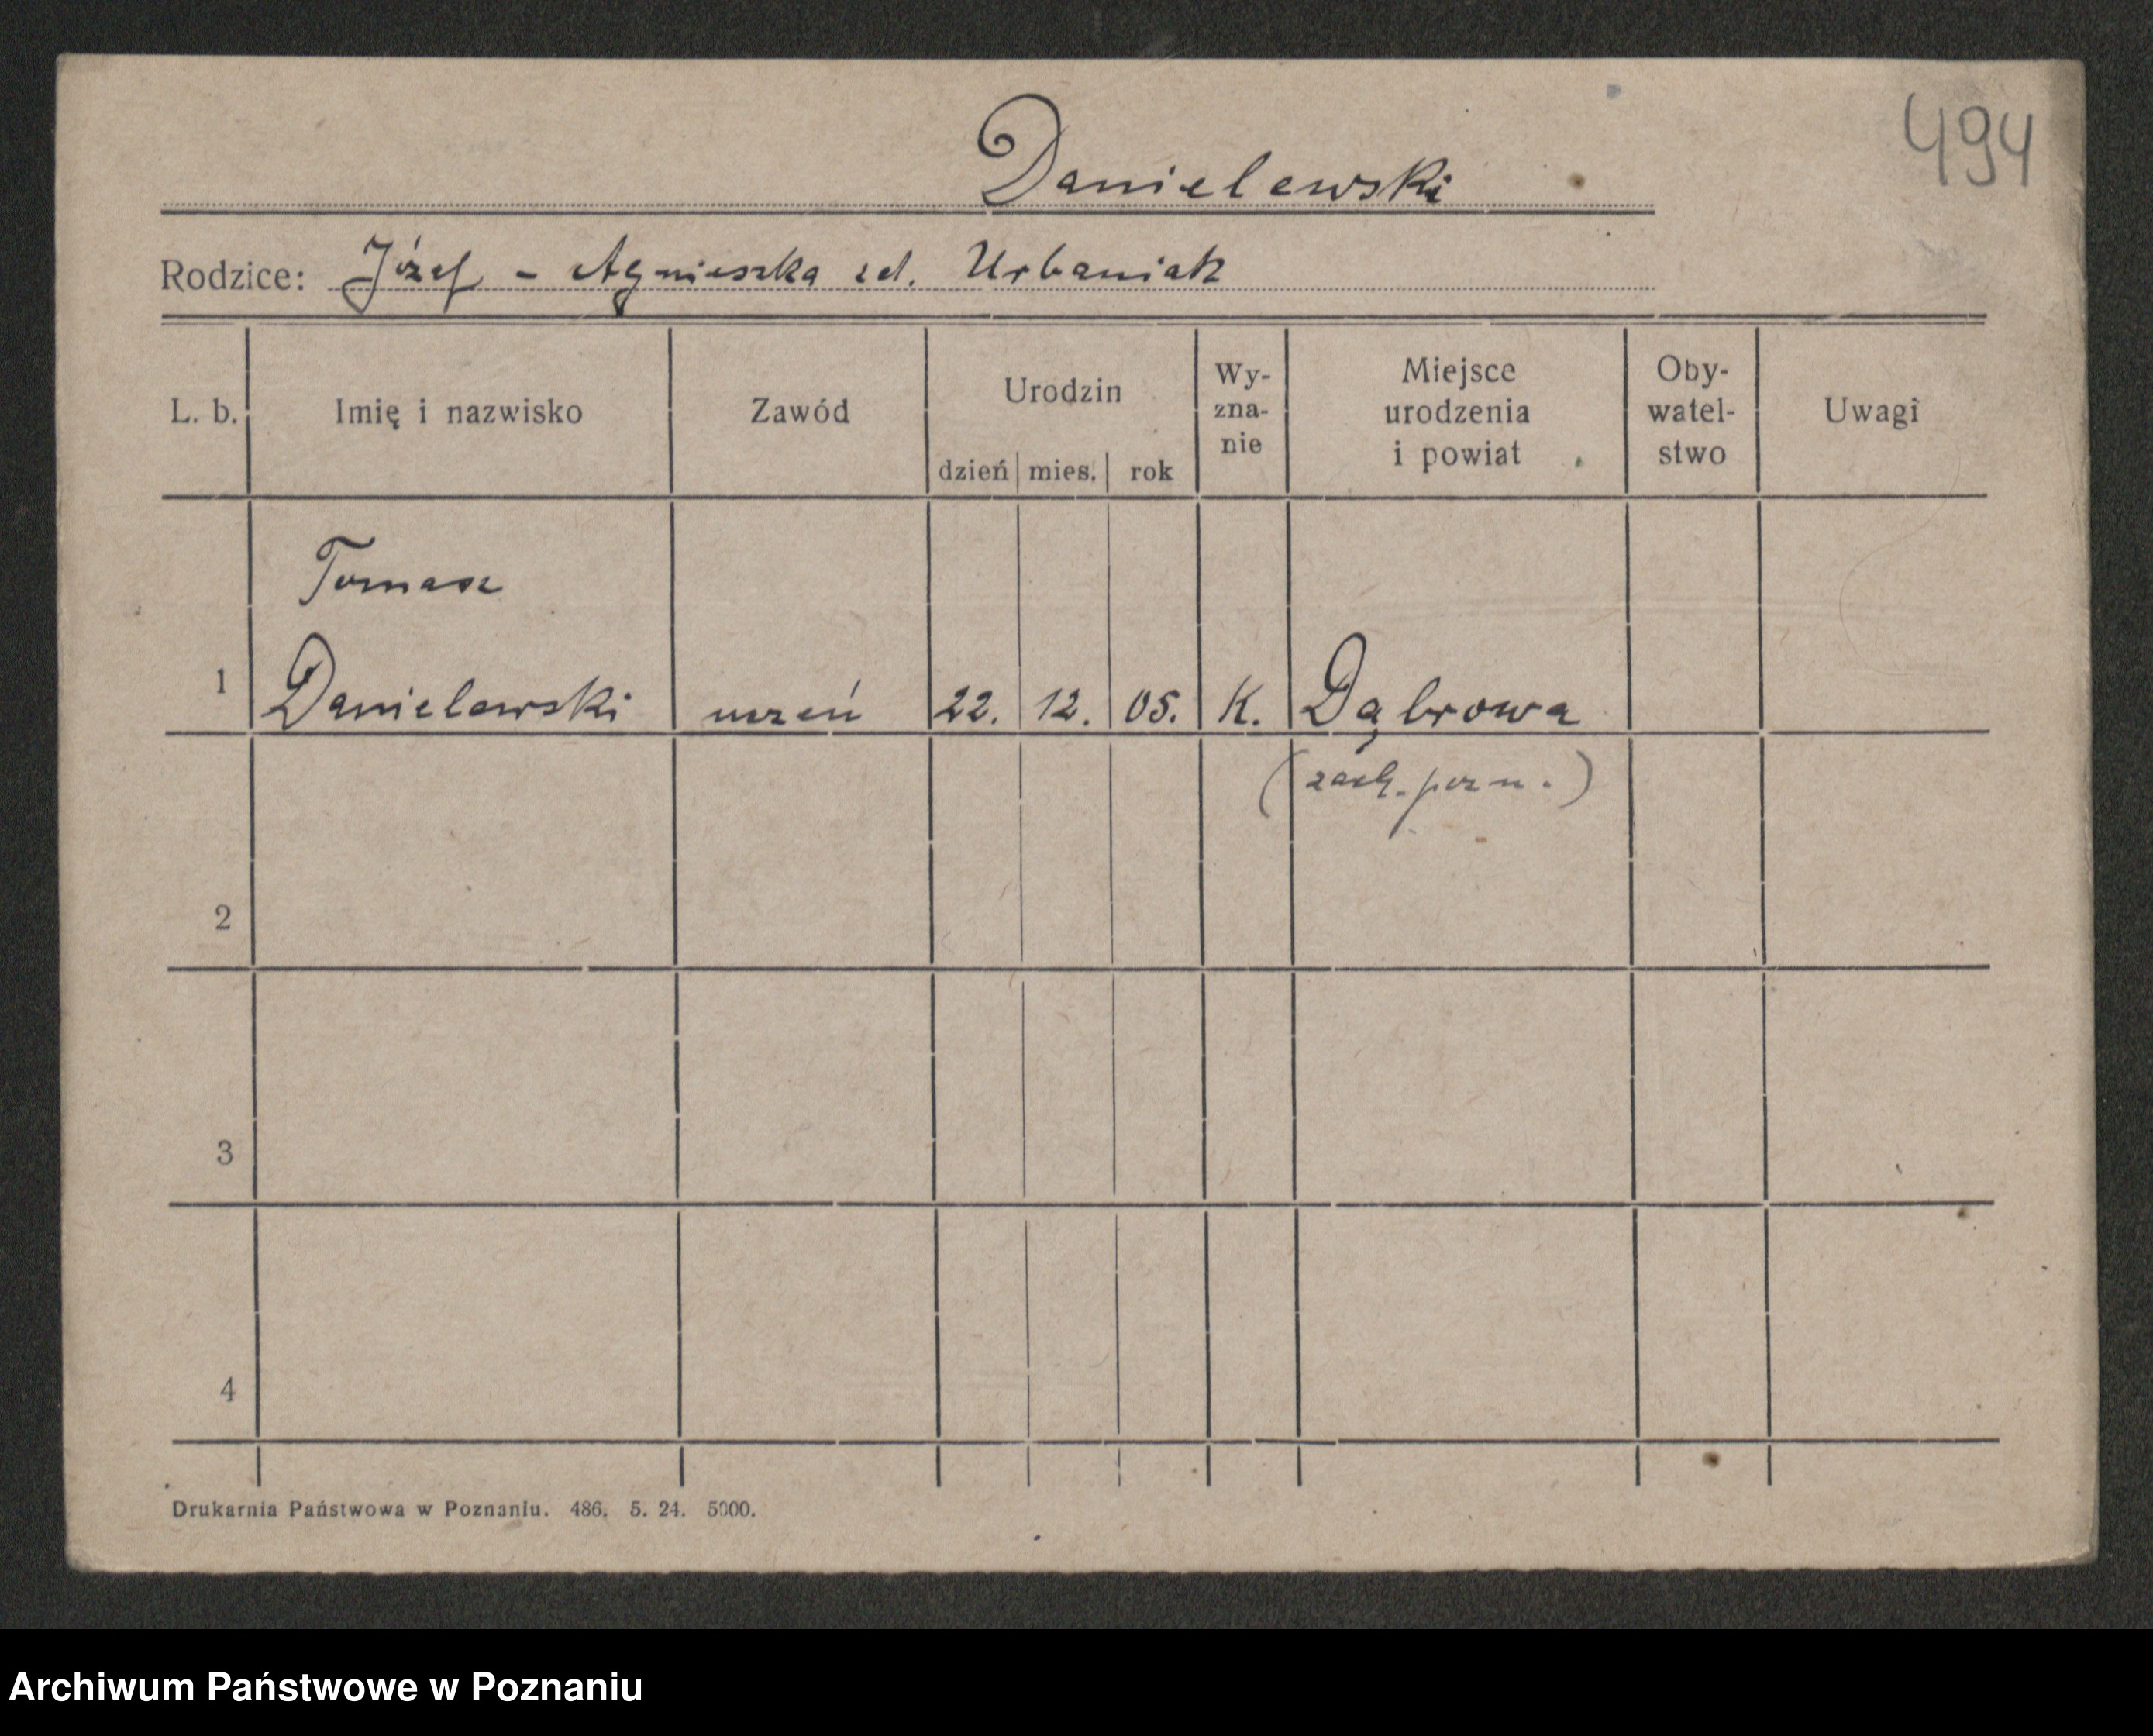 494
Danielewski
Rodzice: Józef - Agnieszka zd. Urbaniak
L. b. Imię i nazwisko Zawód Urodzin dzień mies. rok Wy-zna-nie Miejsce urodzenia i powiat Oby-watel-stwo Uwagi
Tomasz
1 Danielewski uczeń 22. 12. 05. K. Dąbrowa
(zach. pozn.)
2
3
4
Drukarnia Państwowa w Poznaniu. 486. 5. 24. 5000.
Archiwum Państwowe w Poznaniu